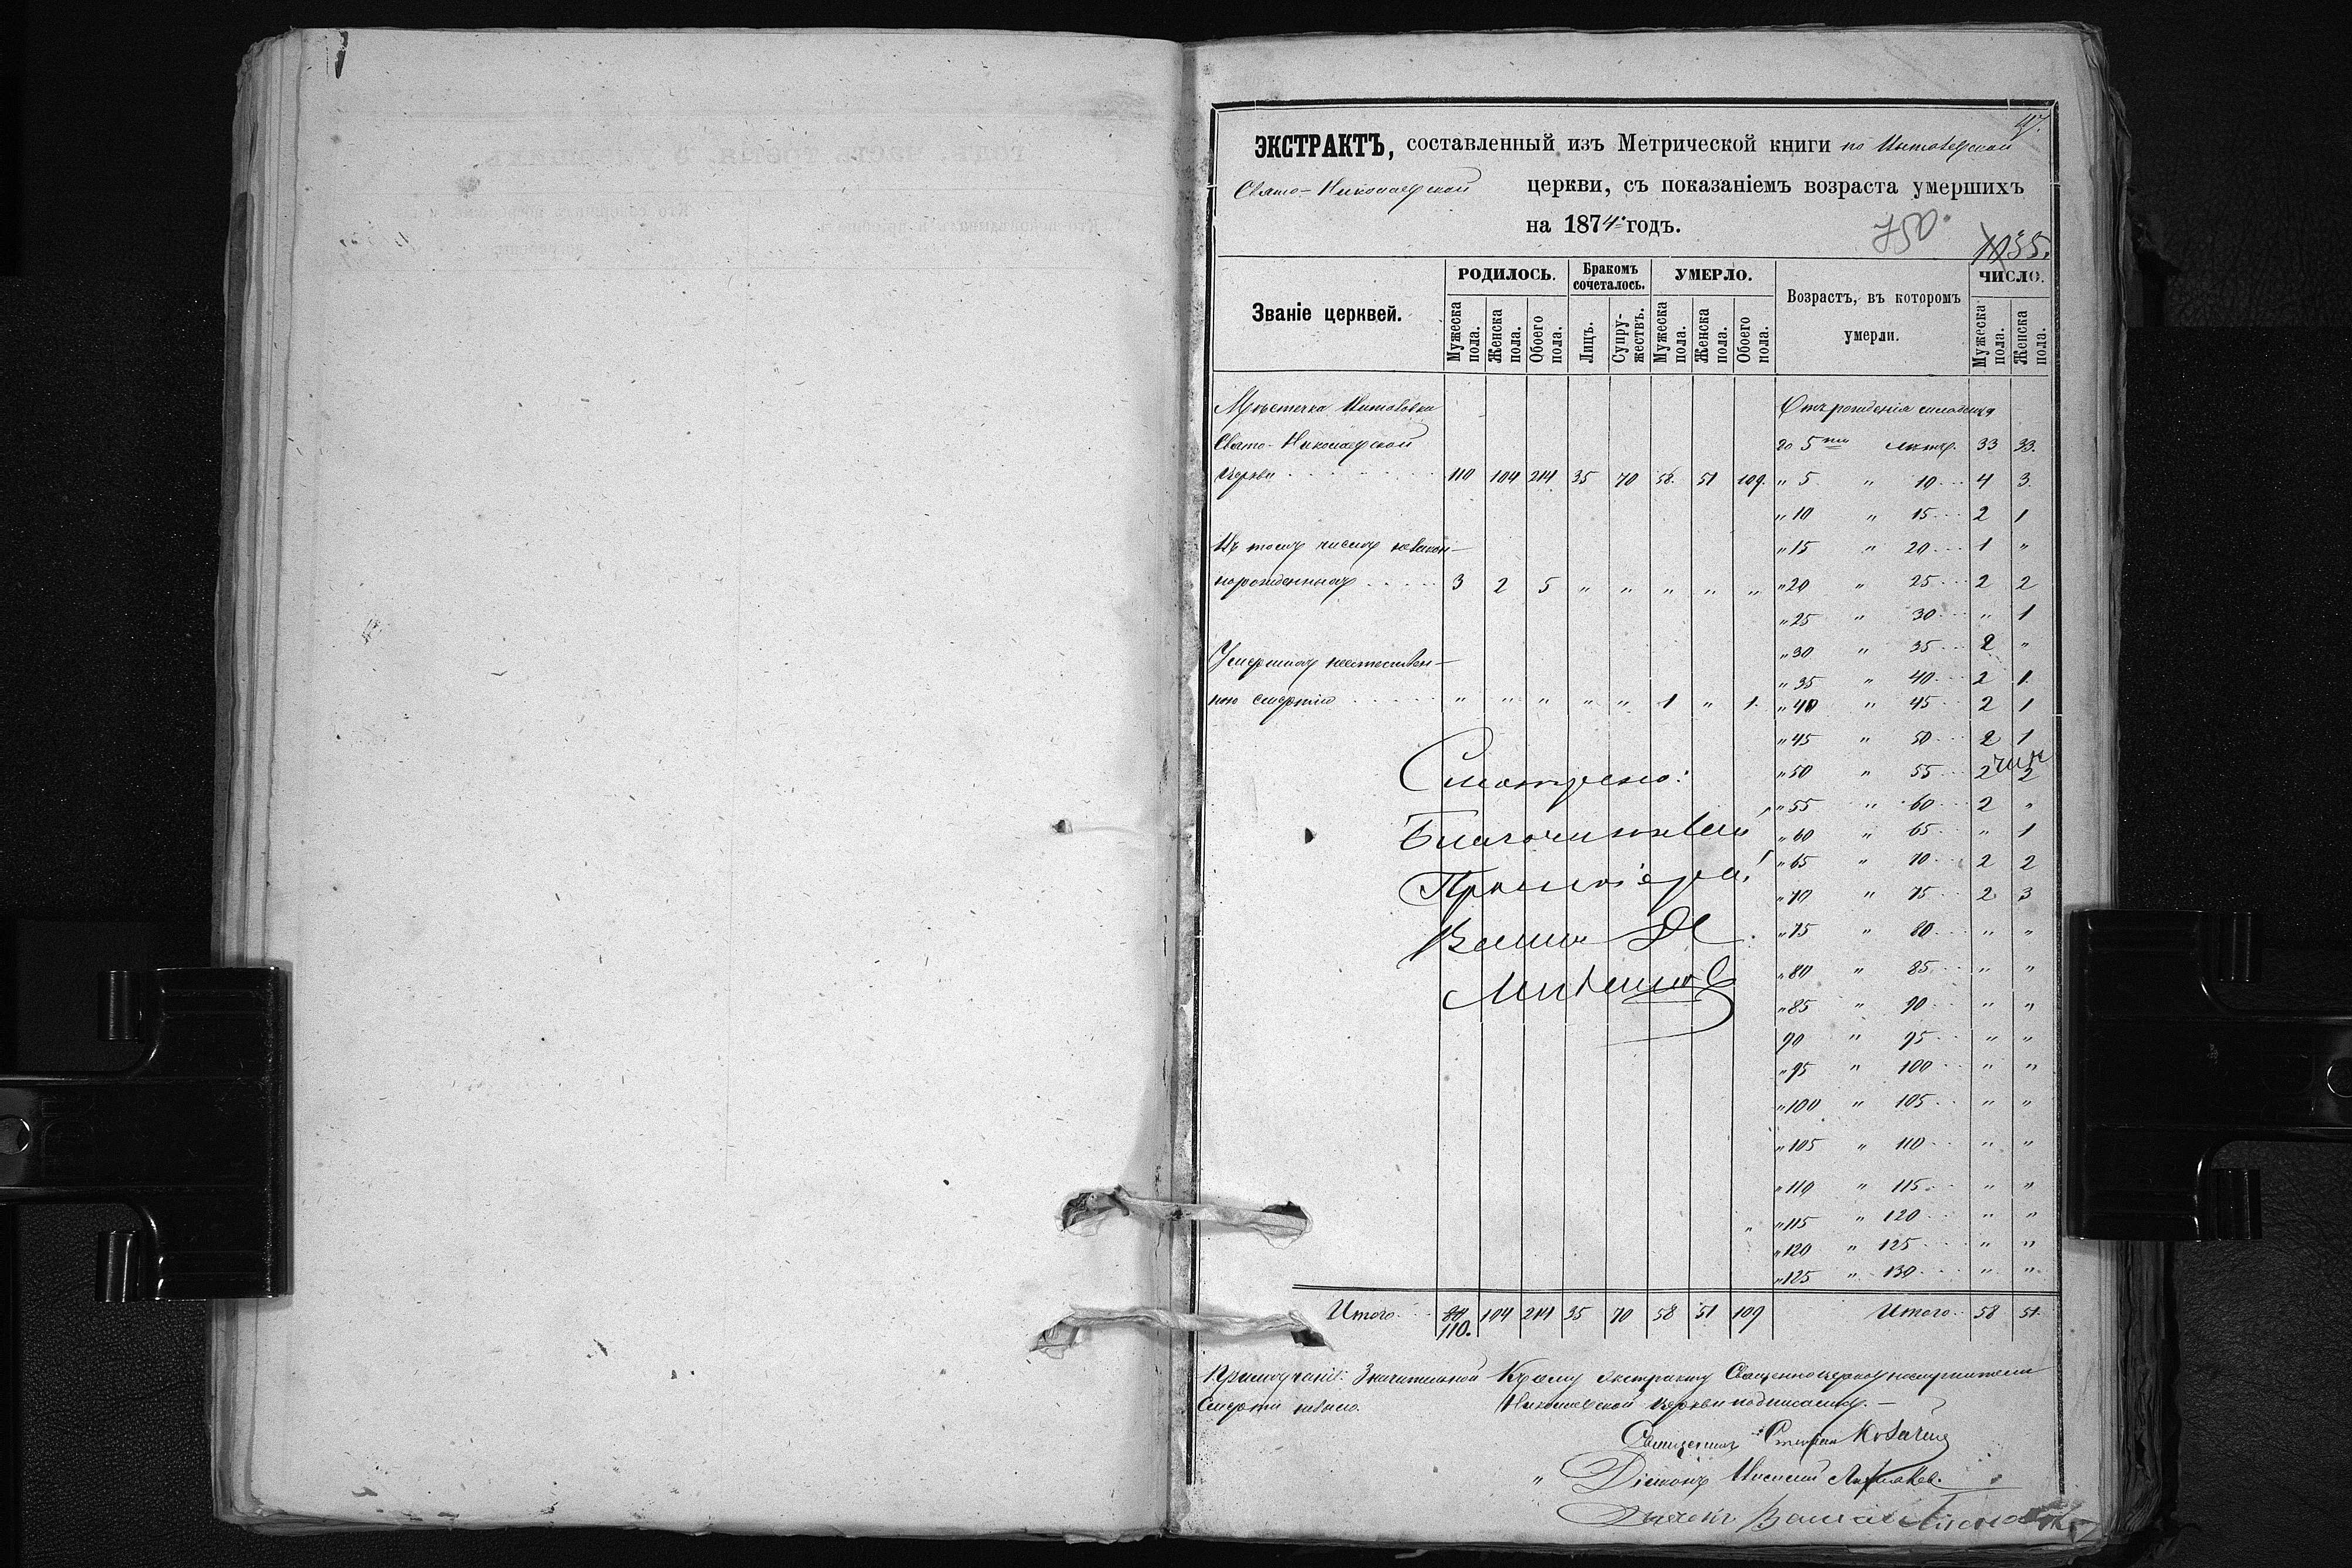 47.
ЭКСТРАКТЪ, составленный изъ Метрической книги по
Свято-Николаевской церкви, съ показаніемъ возраста умершихъ
на 1874 годъ.
750
1035.
Званіе церквей. РОДИЛОСЬ. Бракомъ сочеталось. УМЕРЛО. Возрастъ, въ которомъ умерли. ЧИСЛО.
Мужеска пола. Женска пола. Обоего пола. Лицъ. Супружествъ. Мужеска пола. Женска пола. Обоего пола. Мужеска пола. Женска пола.
Мѣстечка Отъ рожденія
Свято-Николаевской до 5ти лѣтъ. 33 33.
Церкви 110 104 214 35 70 58 51 109 " 5 " 10 4 3
" 10 " 15 2 1
Въ томъ числѣ незакон- " 15 " 20 1 "
норожденныхъ 3 2 5 " " " " " " 20 " 25 2 2
" 25 " 30 " 1
" 30 " 35 2 "
Умершихъ неестествен- " 35 " 40 2 1
ною смертію " " " " " 1 " 1 " 40 " 45 2 1
" 45 " 50 2 1
Смотрено: " 50 " 55 2 2
" 55 " 60 2 "
Благочинный " 60 " 65 " 1
" 65 " 70 2 2
Протоіерей " 70 " 75 2 3
" 75 " 80 " "
" 80 " 85 " "
" 85 " 90 " "
90 " 95 " "
" 95 " 100 " "
" 100 " 105 " "
" 105 " 110 " "
" 110 " 115 " "
" 115 " 120 " "
" 120 " 125 " "
" 125 " 130 " "
Итого 110. 104 214 35 70 58 51 109 Итого 58 51
Примѣчаніе: Значительной Къ сему экстракту Священноцерковнослужители
Смерти небыло. Николаевской Церкви подписались.
Священникъ Стефанъ
" Діаконъ